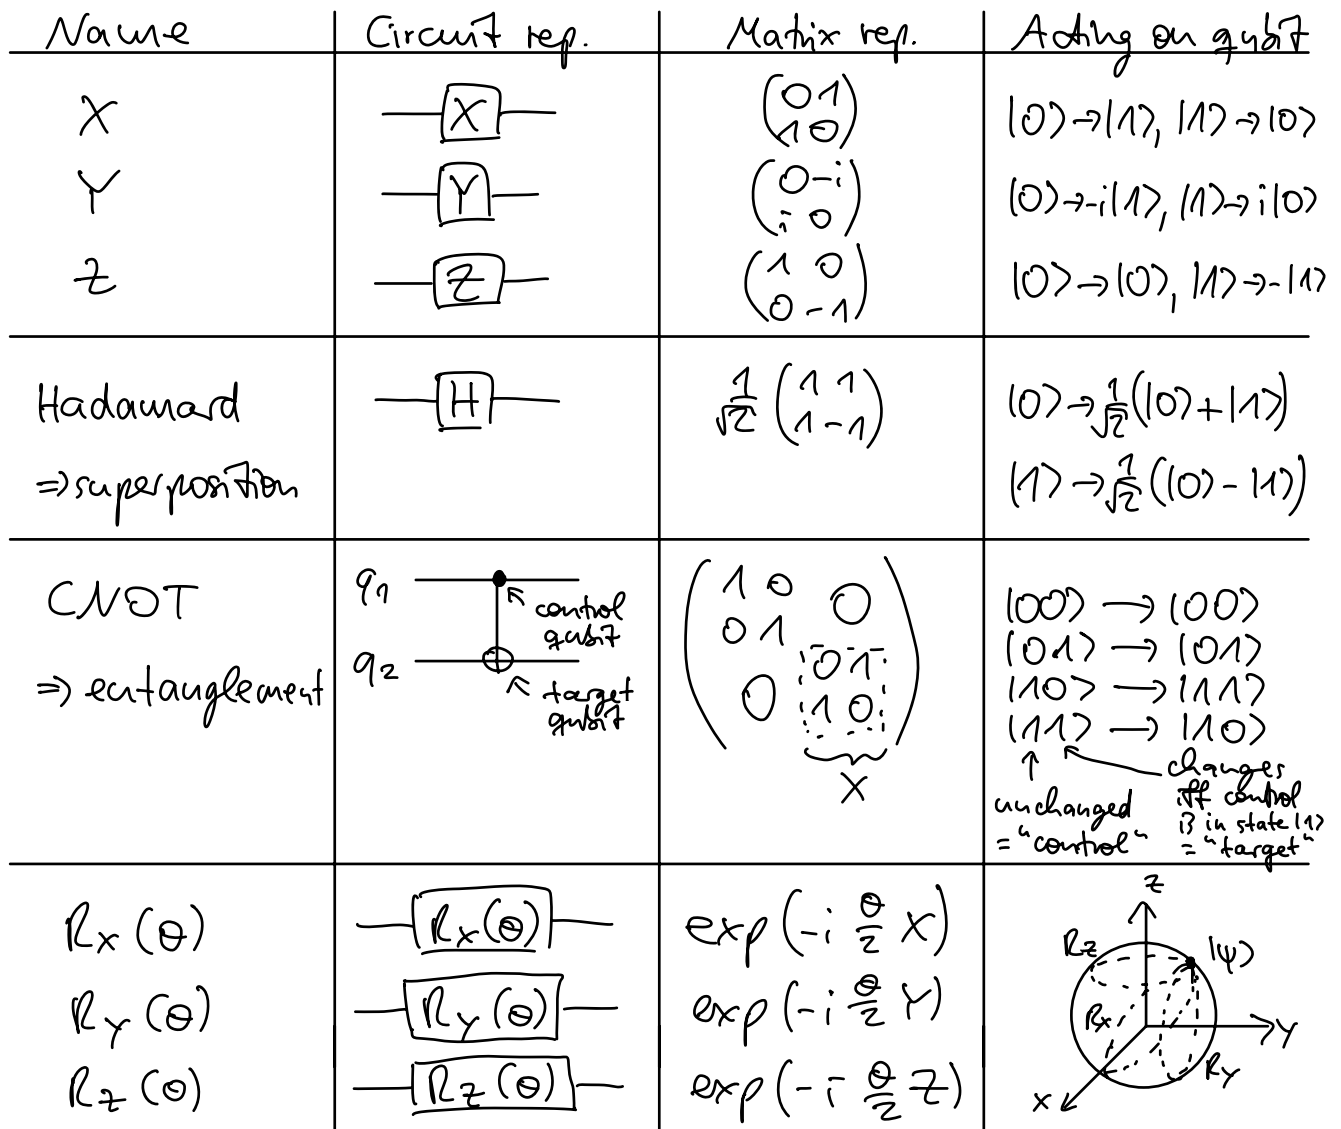 Name Circuit rep. Matrix rep. Acting on qubit
X X (0 1 |0⟩→|1⟩, |1⟩→|0⟩
1 0)
Y Y (0 -i |0⟩→-i|1⟩, |1⟩→i|0⟩
i 0)
Z Z (1 0 |0⟩→|0⟩, |1⟩→-|1⟩
0 -1)
Hadamard H 1/√2 (1 1 |0⟩→1/√2(|0⟩+|1⟩)
1 -1)
⇒superposition |1⟩→1/√2(|0⟩-|1⟩)
CNOT
⇒ entanglement
q1
control
qubit
q2
target
qubit
(1 0 0
0 1
0 0 1
1 0)
X
|00⟩ → |00⟩
|01⟩ → |01⟩
|10⟩ → |11⟩
|11⟩ → |10⟩
unchanged
= "control"
changes
iff control
is in state |1⟩
= "target"
Rx(θ) Rx(θ) exp(-i θ/2 X)
Ry(θ) Ry(θ) exp(-i θ/2 Y)
Rz(θ) Rz(θ) exp(-i θ/2 Z)
z
Rz |ψ⟩
Rx
y
Ry
x